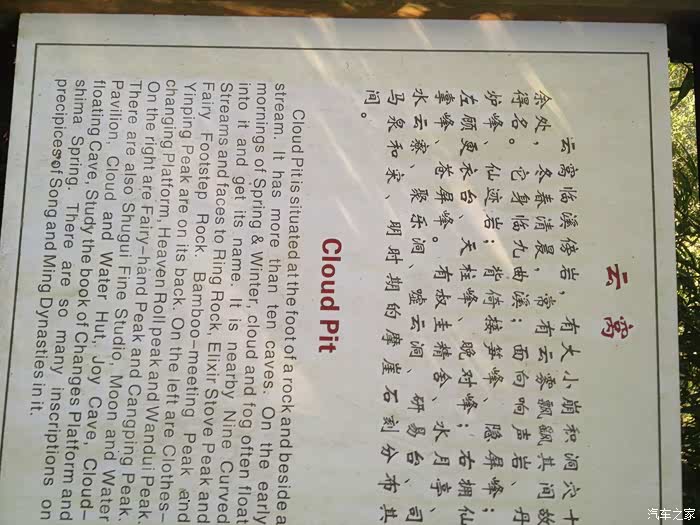 云窝
云窝临溪倚岩，有大小崩和洞穴十
余处，冬春清晨，常有云雾飘飘其间故
得名。它身临九曲溪；面向响声岩、丹
炉峰、仙迹岩；背倚接笋峰、隐屏峰；
左顾更衣台、天柱峰、晚对峰；右拥仙
掌峰、苍屏峰。有叔圭精舍、水月亭、
水云寮、聚乐洞、嘘云洞、研易台、司
马泉和宋、明时期的摩崖石刻分布其
间。
Cloud Pit
Cloud Pit is situated at the foot of a rock and beside a
stream. It has more than ten caves. On the early
mornings of Spring & Winter, cloud and fog often float
into it and get its name. It is nearby Nine Curved
Streams and faces to Ring Rock, Elixir Stove Peak and
Fairy Footstep Rock. Bamboo-meeting Peak and
Yinping Peak are on its back. On the left are Clothes-
changing Platform, Heaven Roll peak and Wandui Peak.
On the right are Fairy-hand Peak and Cangping Peak.
There are also Shugui Fine Studio, Moon and Water
Pavilion, Cloud and Water Hut, Joy Cave, Cloud-
floating Cave, Study the book of Changes Platform and
shima Spring. There are so many inscriptions on
precipices of Song and Ming Dynasties in it.
汽车之家